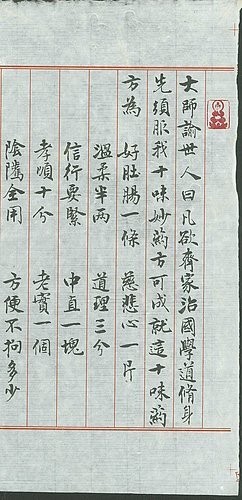 大師諭世人曰凡欲齊家治國學道脩身
先須服我十味妙藥方可成就這十味藥
方為 好肚腸一條 慈悲心一片
溫柔半兩 道理三分
信行要緊 中直一塊
孝順十分 老實一個
陰隲全用 方便不拘多少